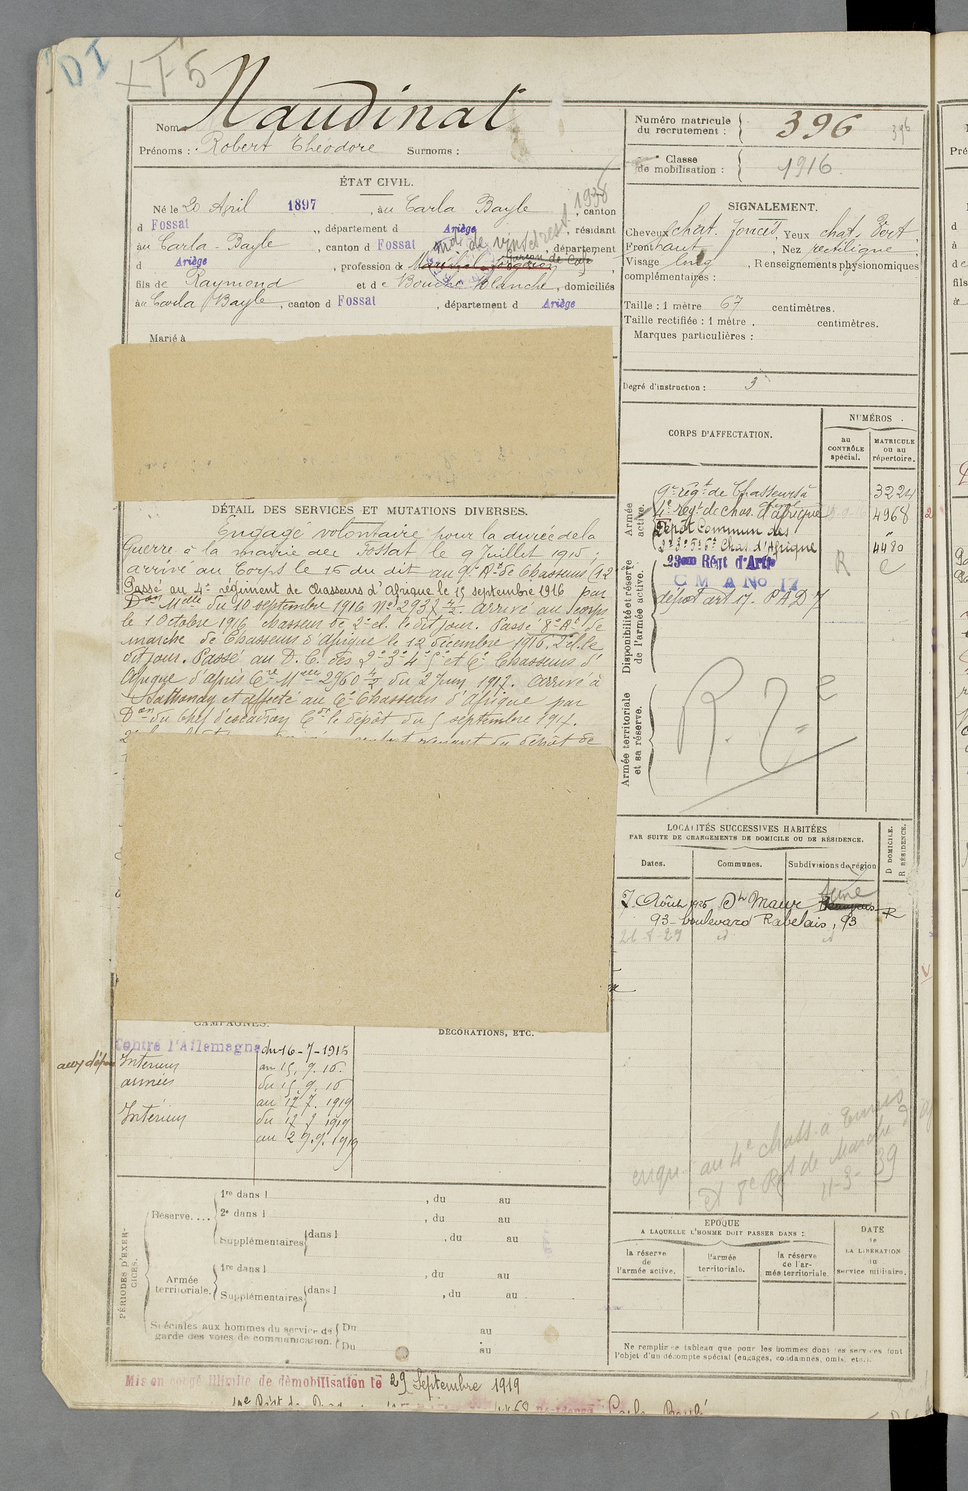 DI
+F5
Nom Naudinat
Prénoms : Robert Théodore Surnoms :
Numéro matricule du recrutement : 396
396
Classe de mobilisation : 1916
ÉTAT CIVIL.
1938
Né le 20 April 1897, au Carla Bayle, canton
d Fossat, département d Ariège, résidant
au Carla-Bayle, canton d Fossat, département
md de vins
d Ariège, profession de Maréchal-forgeron
fils de Raymond et de Bouche Blanche, domiciliés
au Carla Bayle, canton d Fossat, département d Ariège
Marié à
SIGNALEMENT.
Cheveux chat. foncés, Yeux chat. vert,
Front haut, Nez rectiligne,
Visage long, Renseignements physionomiques
complémentaires :
Taille : 1 mètre 67 centimètres.
Taille rectifiée : 1 mètre . centimètres.
Marques particulières :
Degré d'instruction : 3
DÉTAIL DES SERVICES ET MUTATIONS DIVERSES.
Engagé volontaire pour la durée de la
Guerre à la mairie de Fossat, le 9 Juillet 1915 ;
arrivé au Corps le 16 du dit au 9e Rt de Chasseurs (12
Passé au 4e régiment de chasseurs d'Afrique le 15 septembre 1916 par
Don Melle du 10 septembre 1916 No 2937 arrivé au corps
le 1 Octobre 1916 chasseur de 2e cl. le dit jour. Passé 8e Rt de
marche de Chasseurs d'Afrique le 12 décembre 1916. 2e cl. le
dit jour. Passé au D. C. des 2e 3e 4e 5e et 6e Chasseurs d'
Afrique d'après Cre Melle 2960 du 2 Juin 1917. Arrivé à
Sathonay et affecté au 6e Chasseurs d'Afrique par
Don du Chef d'escadron Cdt le dépôt du 5 septembre 1917.
CORPS D'AFFECTATION.
NUMÉROS
au CONTRÔLE spécial.
MATRICULE ou au répertoire.
Armée active.
9e régt de Chasseurs à 3224
4e régt de chas. d'Afrique 4968
Dépôt Commun des
2e 3e 5e 6e Chas. d'Afrique 4490
Disponibilité et réserve de l'armée active.
23eme Régt d'Artie R
C M A No 17
dépôt art 17. PAD 7
Armée territoriale et sa réserve.
R. 2
LOCALITÉS SUCCESSIVES HABITÉES
PAR SUITE DE CHANGEMENTS DE DOMICILE OU DE RÉSIDENCE.
Dates. Communes. Subdivisions de région
D DOMICILE. R RÉSIDENCE.
7 Août 1926 St Maur Seine R
93 - boulevard Rabelais, 93
CAMPAGNES.
DÉCORATIONS, ETC.
Contre l'Allemagne du 16-7-1915
Intérieur au 15.9.16.
aux armées du 15.9.16
au 17.7.1919
Intérieur du 17.7.1919
au 29.9.1919
au 4e chass. à
8e Rgt de Marche
11-3-39
PÉRIODES D'EXERCICES.
Réserve. . . . 1re dans l , du au
2e dans l , du au
Supplémentaires dans l , du au
Armée territoriale. 1re dans l , du au
Supplémentaires dans l , du au
Spéciales aux hommes du service de garde des voies de communication. Du au
Du au
EPOQUE
A LAQUELLE L'HOMME DOIT PASSER DANS :
la réserve de l'armée active.
l'armée territoriale.
la réserve de l'armée territoriale.
DATE de LA LIBÉRATION du service militaire.
Ne remplir ce tableau que pour les hommes dont les services font
l'objet d'un décompte spécial (engagés, condamnés, omis, etc.).
Mis en congé illimité de démobilisation le 29 Septembre 1919